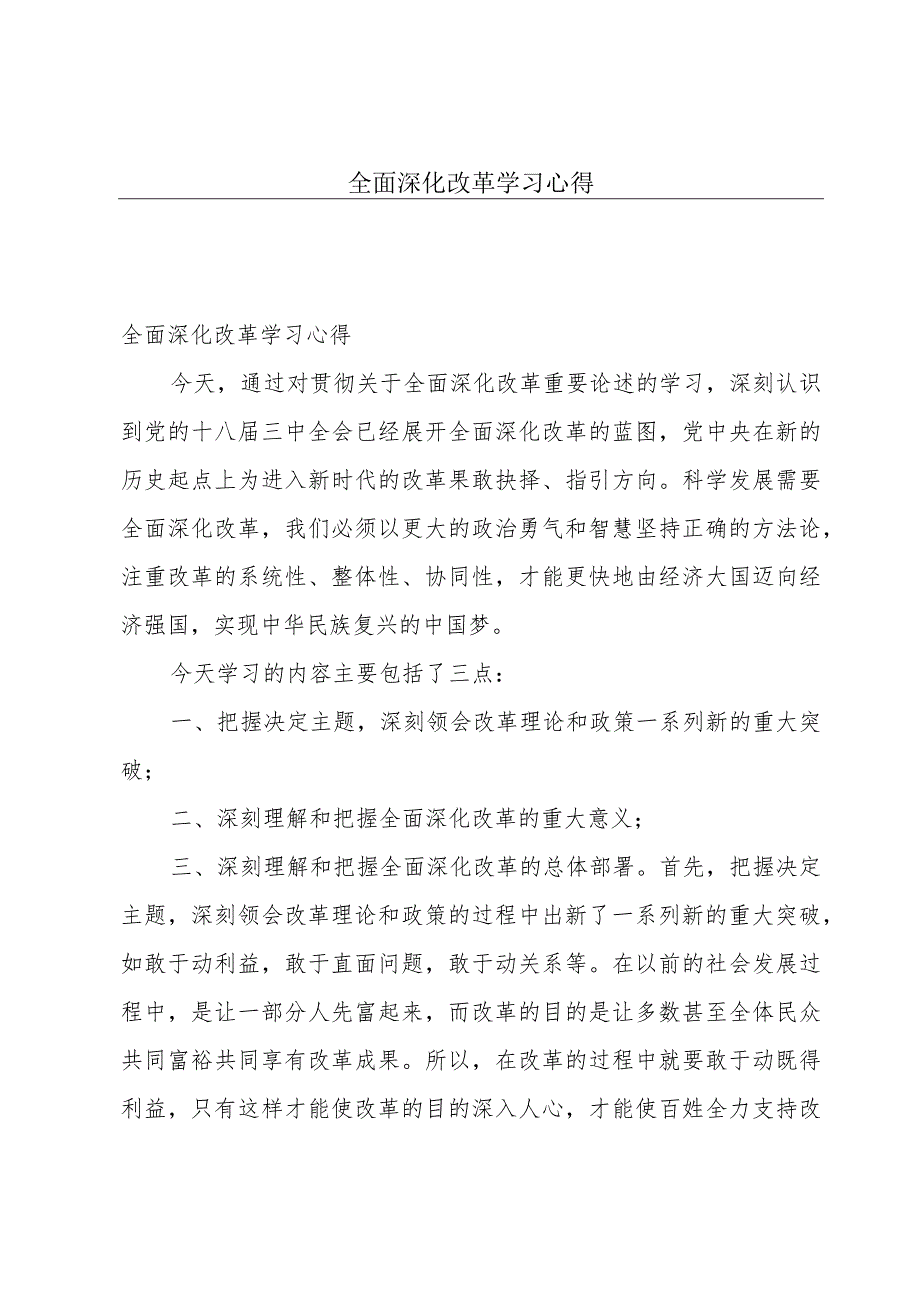 全面深化改革学习心得
全面深化改革学习心得
今天，通过对贯彻关于全面深化改革重要论述的学习，深刻认识
到党的十八届三中全会已经展开全面深化改革的蓝图，党中央在新的
历史起点上为进入新时代的改革果敢抉择、指引方向。科学发展需要
全面深化改革，我们必须以更大的政治勇气和智慧坚持正确的方法论，
注重改革的系统性、整体性、协同性，才能更快地由经济大国迈向经
济强国，实现中华民族复兴的中国梦。
今天学习的内容主要包括了三点：
一、把握决定主题，深刻领会改革理论和政策一系列新的重大突
破；
二、深刻理解和把握全面深化改革的重大意义；
三、深刻理解和把握全面深化改革的总体部署。首先，把握决定
主题，深刻领会改革理论和政策的过程中出新了一系列新的重大突破，
如敢于动利益，敢于直面问题，敢于动关系等。在以前的社会发展过
程中，是让一部分人先富起来，而改革的目的是让多数甚至全体民众
共同富裕共同享有改革成果。所以，在改革的过程中就要敢于动既得
利益，只有这样才能使改革的目的深入人心，才能使百姓全力支持改